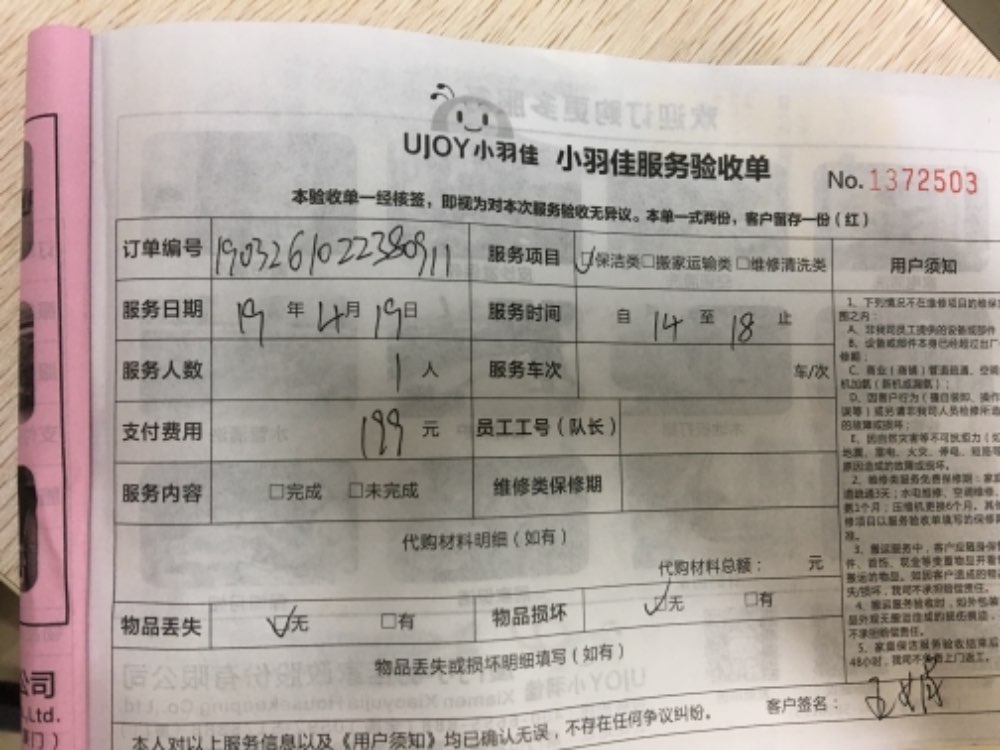 UJOY小羽佳 小羽佳服务验收单
No.1372503
本验收单一经核签，即视为对本次服务验收无异议。本单一式两份，客户留存一份（红）
订单编号 190326102238091 服务项目 ☑保洁类□搬家运输类□维修清洗类
用户须知
服务日期 19 年 4月 19日 服务时间 自 14 至 18 止
服务人数 1 人 服务车次 车/次
支付费用 199 元 员工工号（队长）
服务内容 □完成 □未完成 维修类保修期
代购材料明细（如有）
代购材料总额： 元
物品丢失 ☑无 □有 物品损坏 ☑无 □有
物品丢失或损坏明细填写（如有）
客户签名：
本人对以上服务信息以及《用户须知》均已确认无误，不存在任何争议纠纷。
1、下列情况不在维修项目的维保
围之内：
A、非我司员工提供的设备或部件
B、设备或部件本身已经超过出厂
修期；
C、商业（商铺）管道疏通、空调
机加氟（新机或漏氟）；
D、因客户行为（擅自装卸、操作
误等）或另请非我司人员检修所造
的故障或损坏；
E、因自然灾害等不可抗拒力（如
地震、雷电、火灾、停电、短路等
原因造成的故障或损坏。
2、维修类服务免费保修期：家
道疏通3天；水电维修、空调维修、
氟1个月；压缩机更换6个月。其他
修项目以服务验收单填写的保修
准。
3、搬运服务中，客户应随身保管
件、首饰、现金等贵重物品并看
搬运的物品。如因客户造成的物
失/损坏，我司不承担赔偿责任。
4、搬运服务验收时，如外包装
显外观无搬运造成的损伤痕迹，
不承担赔偿责任。
5、家庭保洁服务验收结束后
48小时，我司不负责上门返工。
公司
.,Ltd.
门）
欢迎订购更多服